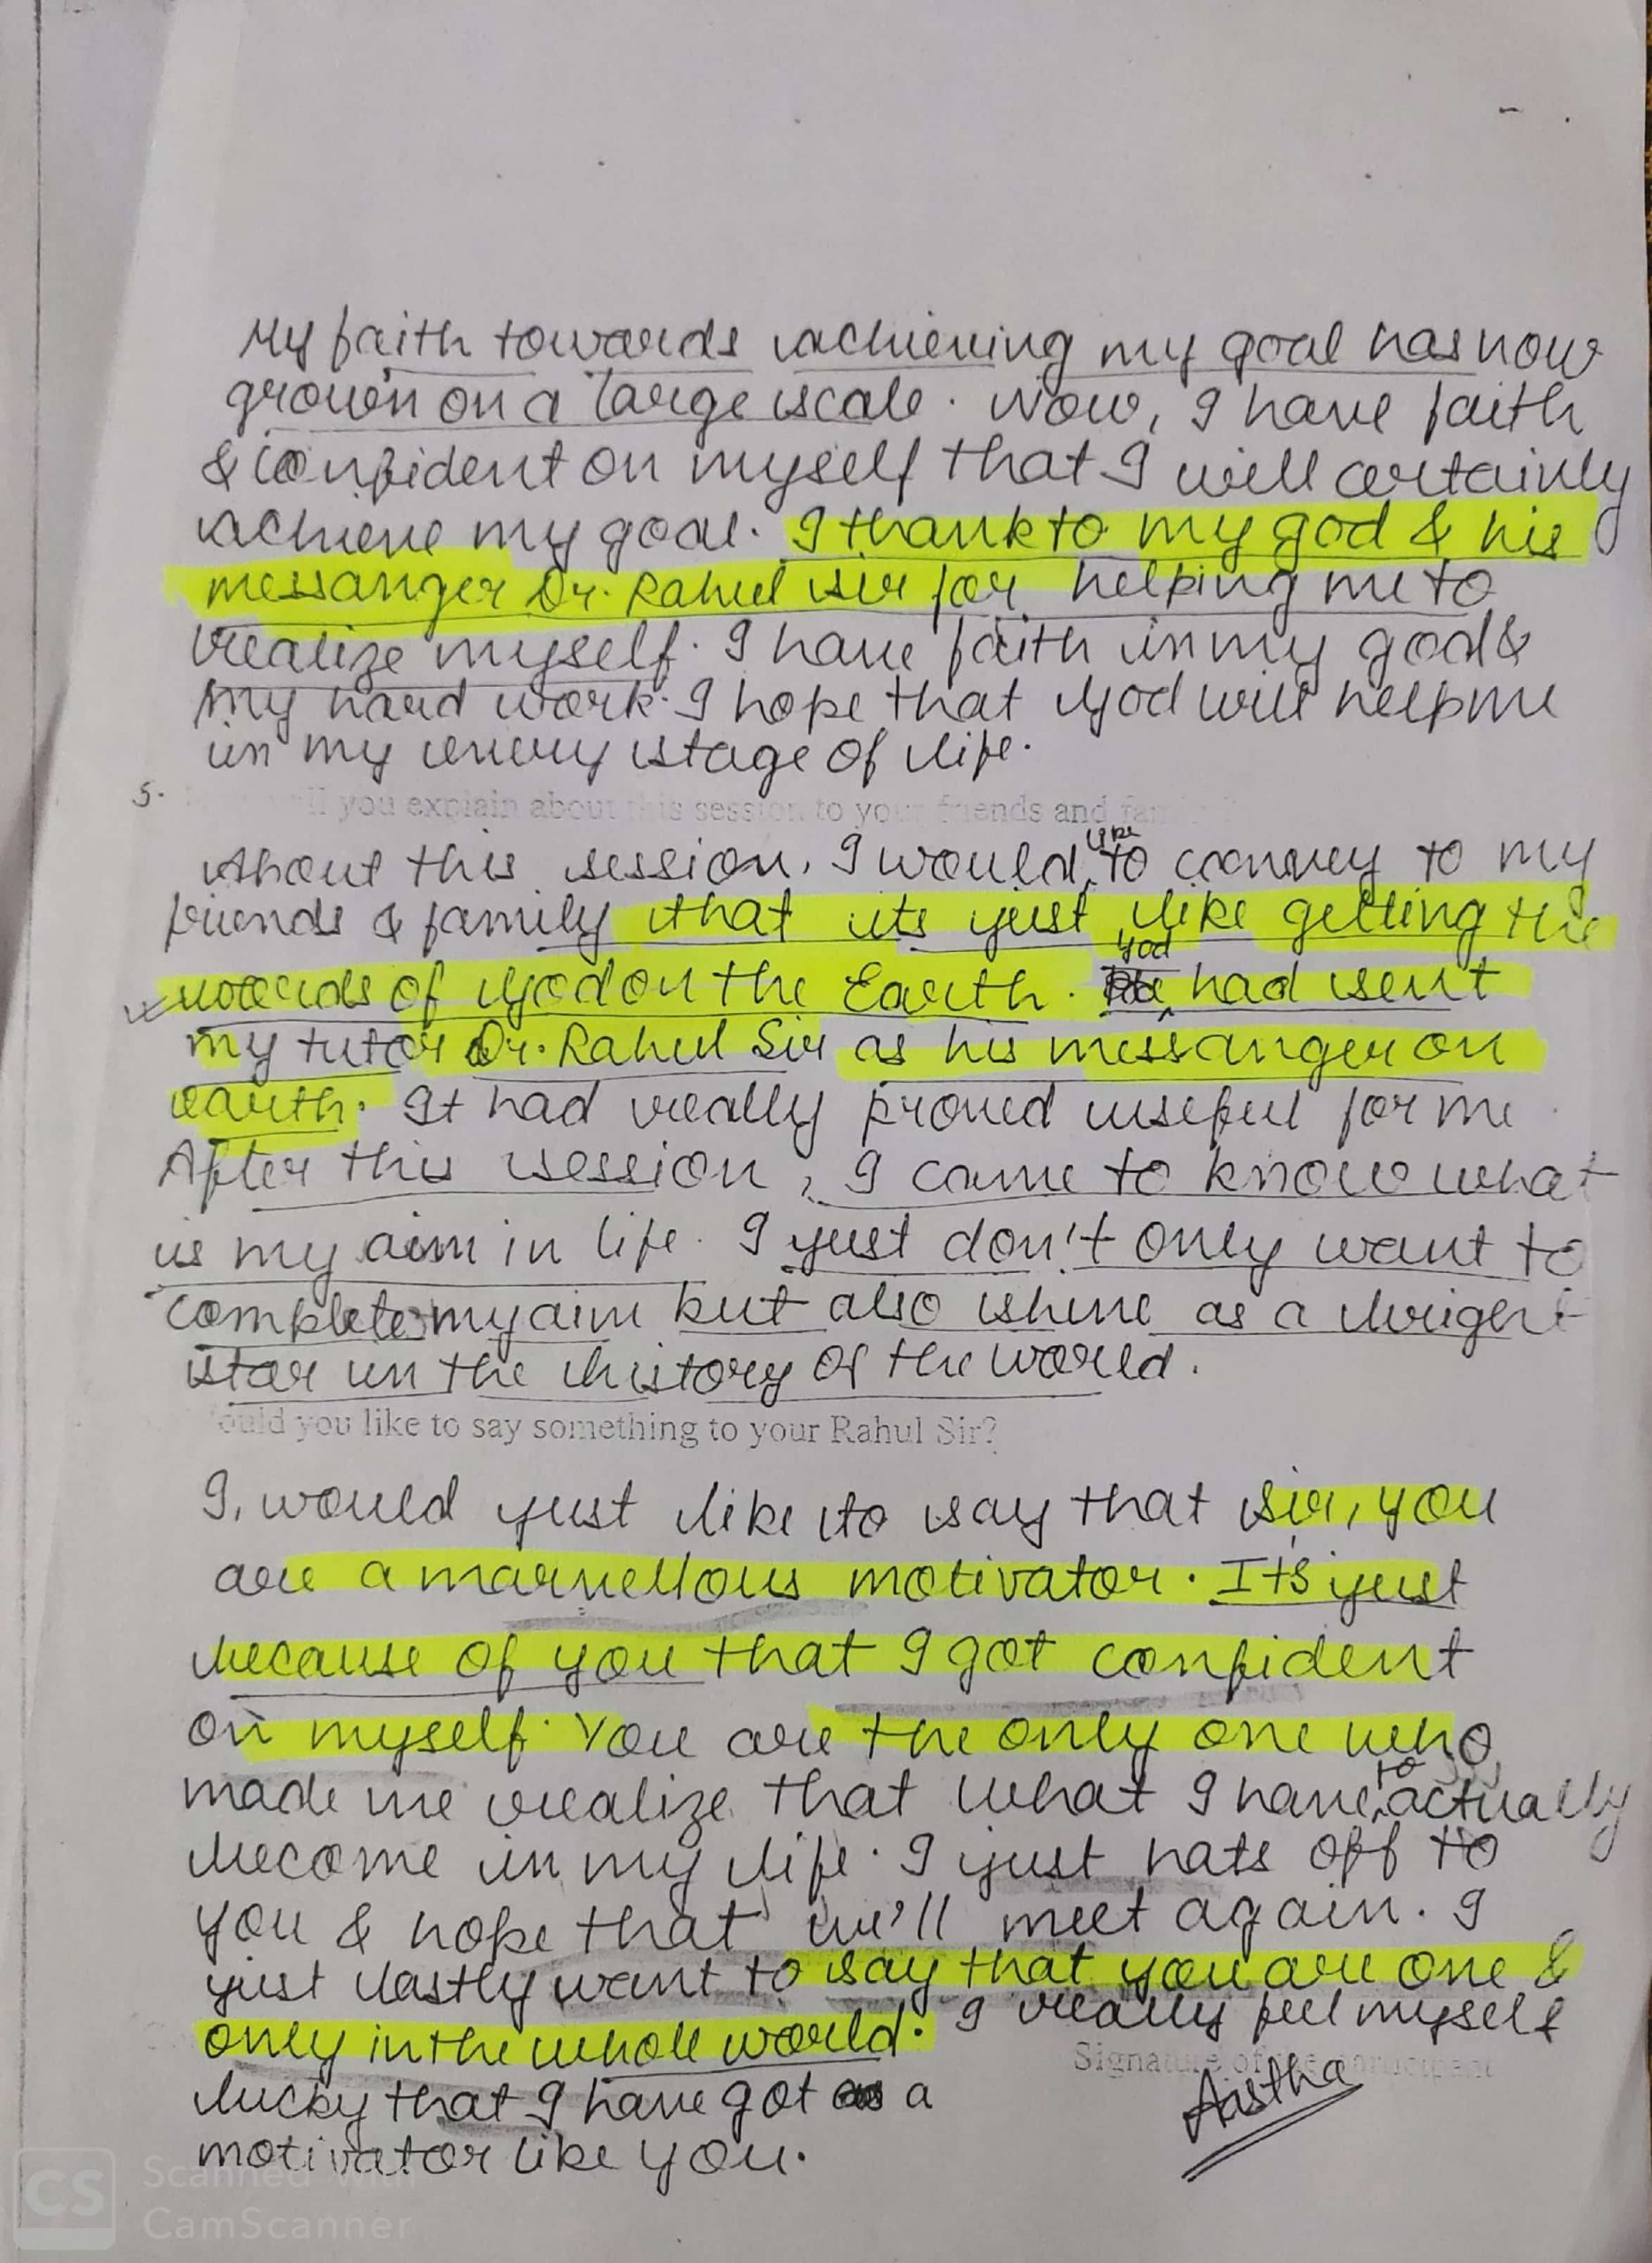 My faith towards achieving my goal has now
grown on a large scale. Now, I have faith
& confident on myself that I will certainly
achieve my goal. I thank to my god & his
messanger Dr. Rahul sir for helping me to
realize myself. I have faith in my god &
my hard work. I hope that God will help me
in my every stage of life.
5. ll you explain about this session to your friends and
About this session, I would like to convey to my
friends & family that its just like getting the
words of God on the Earth. God had sent
my tutor Dr. Rahul Sir as his messanger on
earth. It had really proved useful for me
After this session, I came to know what
is my aim in life. I just don't only want to
complete my aim but also shine as a brigert
star in the history of the world.
ould you like to say something to your Rahul Sir?
I, would just like to say that sir, you
are a marvellous motivator. Its just
because of you that I got confident
on myself. You are the only one who
made me realize that what I have to actually
become in my life. I just hats off to
you & hope that we'll meet again. I
just lastly want to say that you are one &
only in the whole world. I really feel myself
Signature of the participant
lucky that I have got a
Aastha
motivator like you.
CS Scanned with
CamScanner